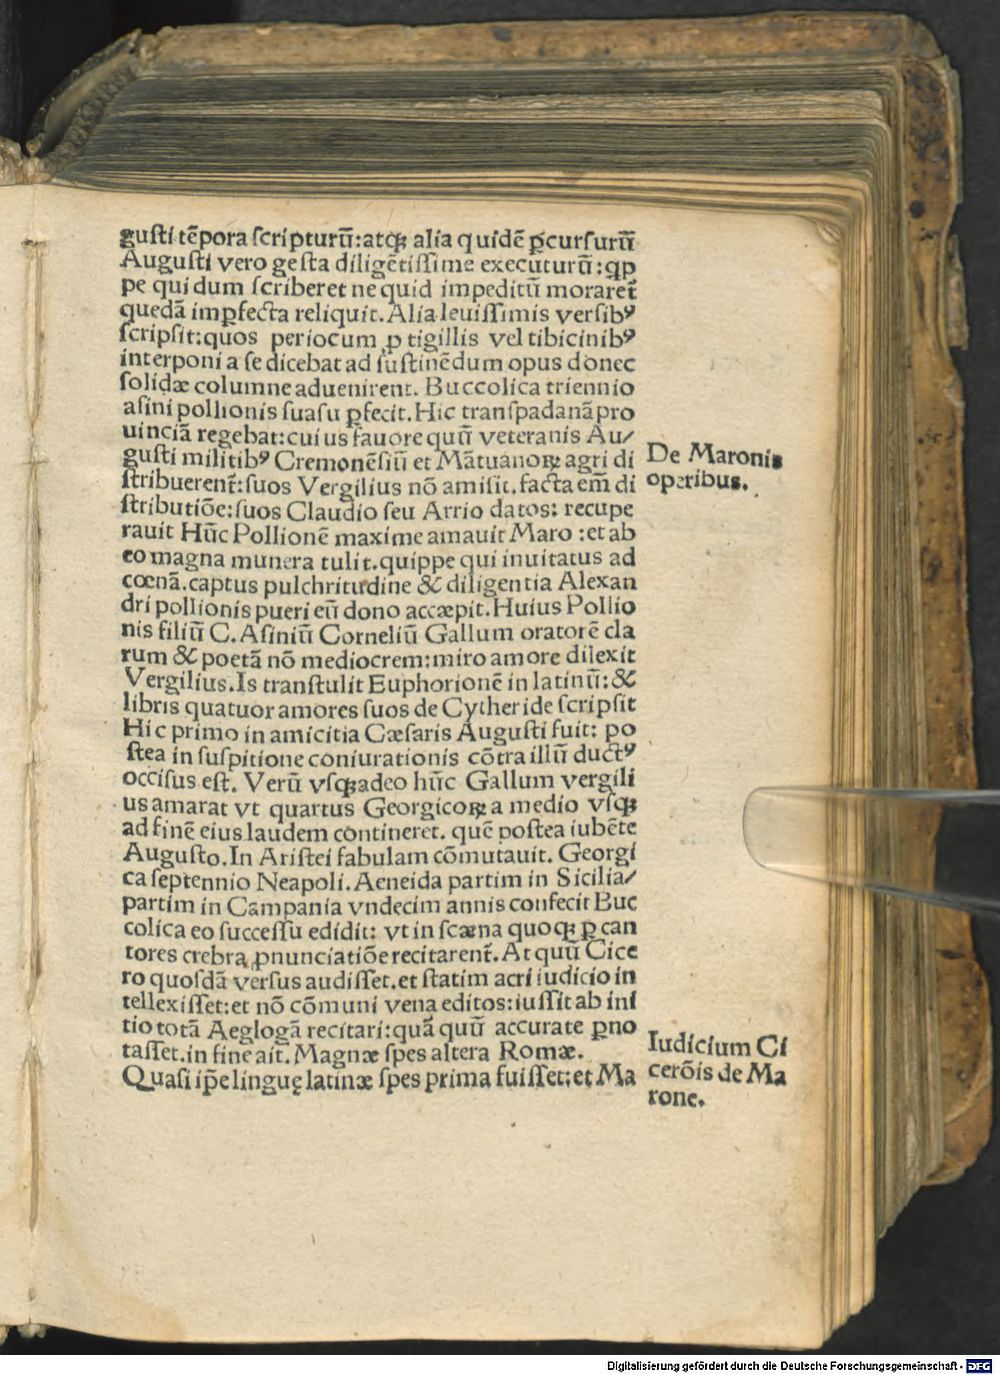 gusti tēpora scripturū:atqꝫ alia quidē ꝑcursurū
Augusti vero gesta diligētissime executurū:qp
pe qui dum scriberet ne quid impeditū moraret᷑
quedā imꝑfecta reliquit. Alia leuissimis versibꝰ
scripsit:quos periocum ꝓ tigillis vel tibicinibꝰ
interponi a se dicebat ad sustinēdum opus donec
solidæ columne aduenirent. Buccolica triennio
asini pollionis suasu ꝑfecit. Hic transpadanā pro
uinciā regebat:cuius fauore quū veteranis Au/
gusti militibꝰ Cremonēsiū et Mātuanoꝝ agri di
stribuerent᷑:suos Vergilius nō amisit. facta em̄ di
stributiōe:suos Claudio seu Arrio datos: recupe
rauit Hūc Pollionē maxime amauit Maro :et ab
eo magna munera tulit. quippe qui inuitatus ad
cœnā. captus pulchritudine & diligentia Alexan
dri pollionis pueri eū dono accæpit. Huius Pollio
nis filiū C. Asiniū Corneliū Gallum oratorē cla
rum & poetā nō mediocrem:miro amore dilexit
Vergilius. Is transtulit Euphorionē in latinū: &
libris quatuor amores suos de Cytheride scripsit
Hic primo in amicitia Cæsaris Augusti fuit: po
stea in suspitione coniurationis cōtra illū ductꝰ
occisus est. Verū vsqꝫadeo hūc Gallum vergili
us amarat vt quartus Georgicoꝝ a medio vsqꝫ
ad finē eius laudem contineret. quē postea iubēte
Augusto. In Aristei fabulam cōmutauit. Georgi
ca septennio Neapoli. Aeneida partim in Sicilia/
partim in Campania vndecim annis confecit Buc
colica eo successu edidit: vt in scæna quoqꝫ ꝑ can
tores crebra ꝓnunciatiōe recitarent᷑. At quū Cice
ro quosdā versus audisset. et statim acri iudicio in
tellexisset:et nō cōmuni vena editos:iussit ab ini
tio totā Aeglogā recitari:quā quū accurate ꝑno
tasset. in fine ait. Magnæ spes altera Romæ.
Quasi ip̄e linguę latinæ spes prima fuisset:et Ma
De Maronis
operibus.
Iudicium Ci
cerōis de Ma
rone.
Digitalisierung gefördert durch die Deutsche Forschungsgemeinschaft - DFG